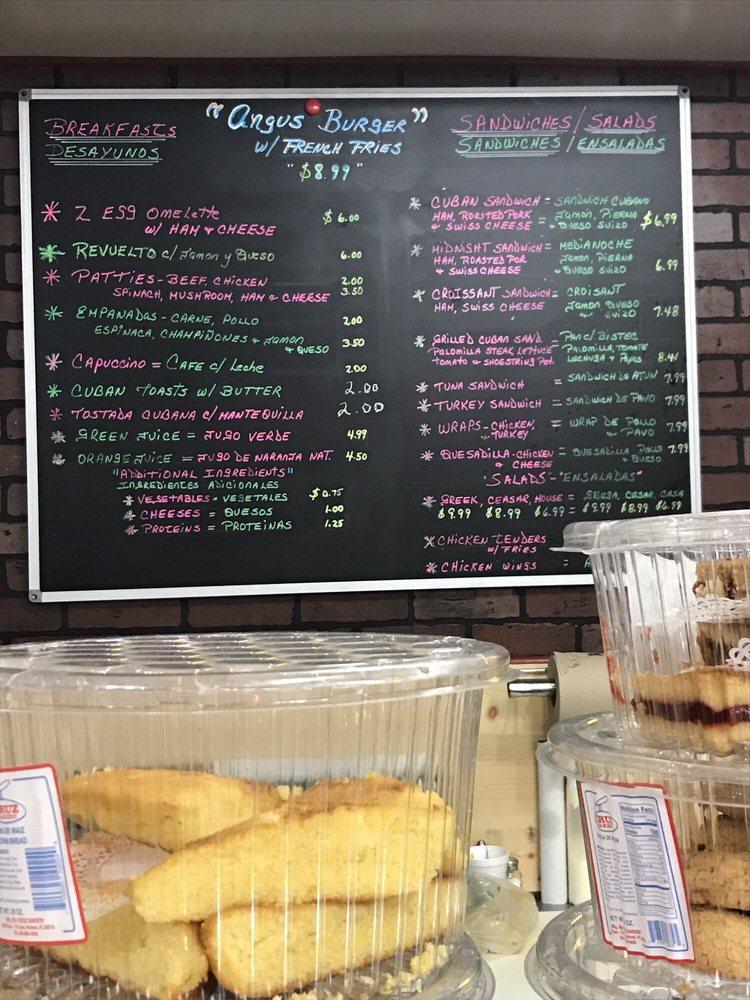 "Angus Burger"
w/ French Fries
"$8.99"
Breakfasts
Desayunos
* 2 Egg Omelette $6.00
w/ Ham & Cheese
* Revuelto c/ Jamon y Queso 6.00
* Patties - Beef, Chicken 2.00
Spinach, Mushroom, Ham & Cheese 3.50
* Empanadas - Carne, Pollo 2.00
Espinaca, Champiñones & Jamon
& Queso 3.50
* Capuccino = Cafe c/ Leche 2.00
* Cuban Toasts w/ Butter 2.00
* Tostada Cubana c/ Mantequilla 2.00
* Green Juice = Jugo Verde 4.99
* Orange Juice = Jugo de Naranja Nat. 4.50
"Additional Ingredients"
Ingredientes Adicionales
* Vegetables - Vegetales $0.75
* Cheeses = Quesos 1.00
* Proteins = Proteinas 1.25
Sandwiches / Salads
Sandwiches / Ensaladas
* Cuban Sandwich = Sandwich Cubano
Ham, Roasted Pork = Jamon, Pierna $6.99
& Swiss Cheese & Queso Suizo
* Midnight Sandwich = Medianoche
Ham, Roasted Por Jamon, Pierna
& Swiss Cheese & Queso Suizo 6.99
* Croissant Sandwich = Croisant
Ham, Swiss Cheese Jamon Queso
& Suizo 7.48
* Grilled Cuban Sand. = Pan c/ Bistec
Palomilla Steak, Lettuce Palomilla, Tomate
Tomato & Shoestring Pot. Lechuga & Papas 8.41
* Tuna Sandwich = Sandwich de Atun 7.99
* Turkey Sandwich = Sandwich de Pavo 7.99
* Wraps - Chicken, = Wrap de Pollo
Turkey & Pavo 7.99
* Quesadilla - Chicken = Quesadilla Pollo 7.99
& Cheese Queso
"Salads - "Ensaladas"
* Greek, Ceasar, House = Griega, Cesar, Casa
$9.99 $8.99 $6.99 = $9.99 $8.99 $6.99
* Chicken Tenders
w/ Fries
* Chicken Wings = A
Nutrition Facts